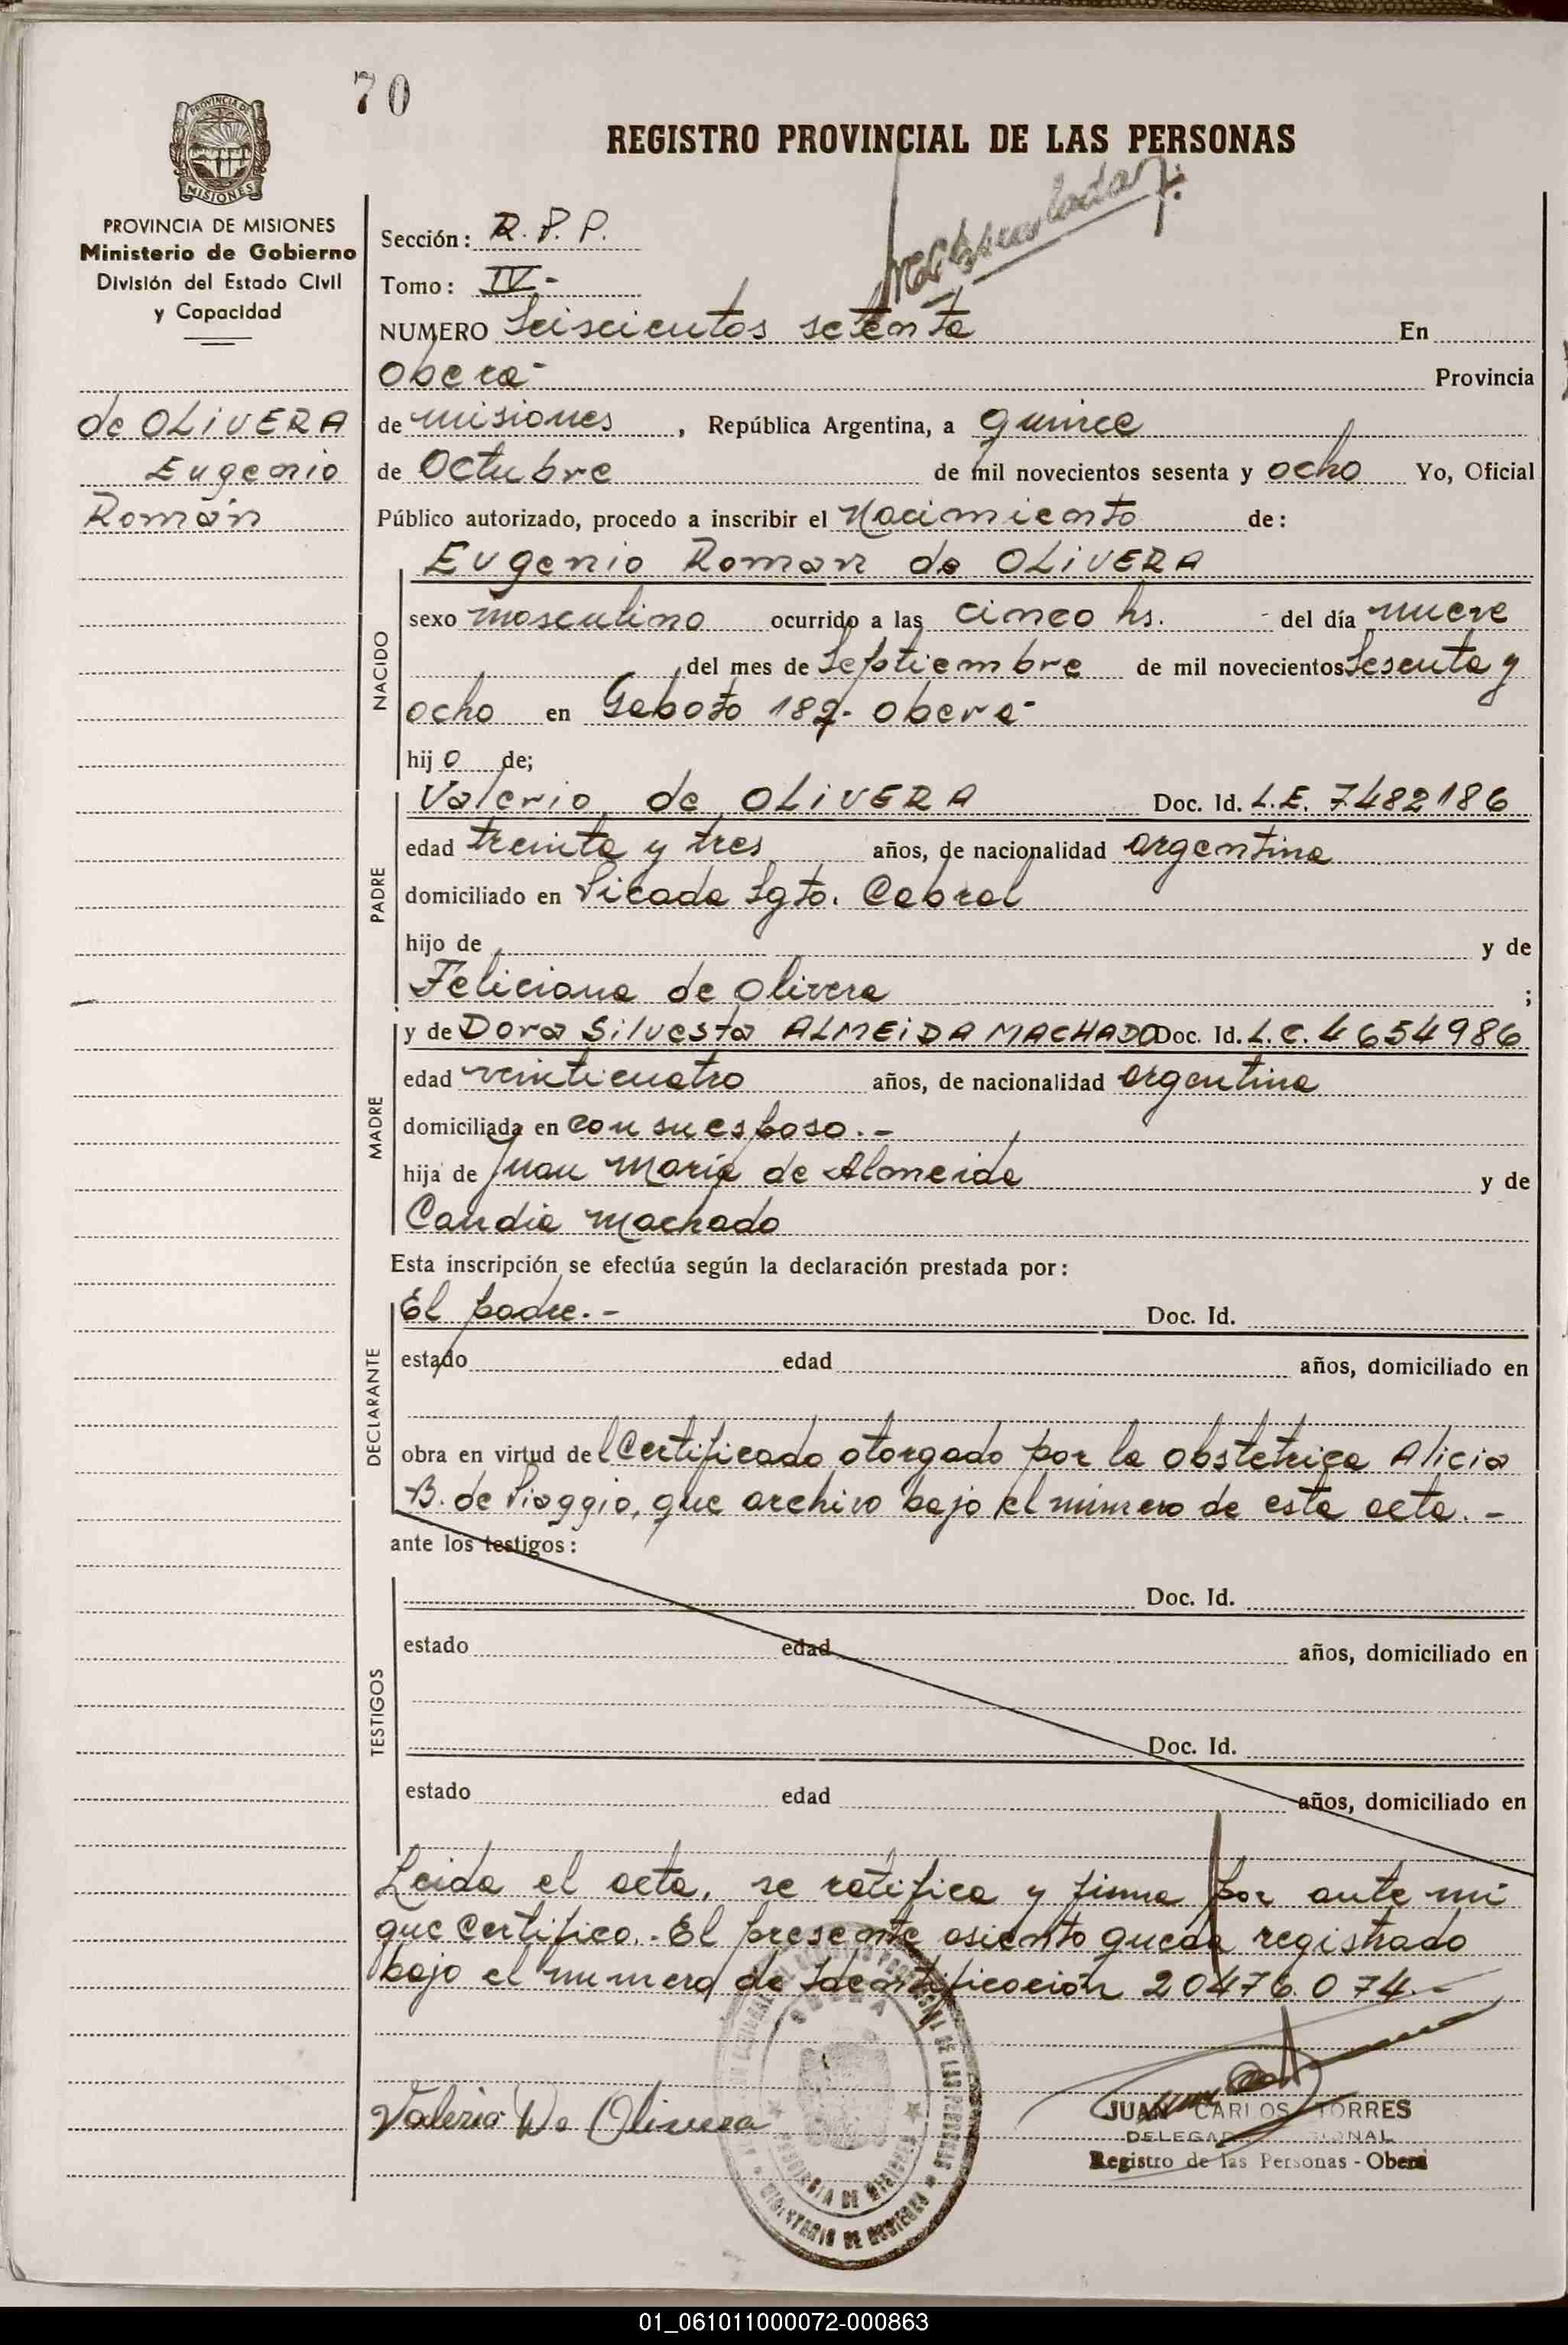 70
REGISTRO PROVINCIAL DE LAS PERSONAS
PROVINCIA DE
MISIONES
PROVINCIA DE MISIONES
Ministerio de Gobierno
División del Estado Civil
y Capacidad
de OLIVERA
Eugenio
Román
Sección: R. P. P.
Tomo: IV-
NUMERO Seiscientos setenta En
Oberá- Provincia
de misiones, República Argentina, a quince
de Octubre de mil novecientos sesenta y ocho Yo, Oficial
Público autorizado, procedo a inscribir el Nacimiento de:
Eugenio Roman de OLIVERA
NACIDO
sexo masculino ocurrido a las cinco hs. - del día nueve
del mes de Septiembre de mil novecientos Sesenta y
ocho en Gaboto 182- Oberá-
hijo de;
PADRE
Valerio de OLIVERA Doc. Id. L.E. 7482186
edad treinta y tres años, de nacionalidad argentina
domiciliado en Picada Sgto. Cabral
hijo de y de
Feliciana de Olivera ;
MADRE
y de Dora Silvesta ALMEIDA MACHADO Doc. Id. L.C. 4654986
edad veinticuatro años, de nacionalidad argentina
domiciliada en con su esposo.-
hija de Juan María de Almeida y de
Candia Machado
Esta inscripción se efectúa según la declaración prestada por:
DECLARANTE
El padre.- Doc. Id.
estado edad años, domiciliado en
obra en virtud del Certificado otorgado por la obstetrica Alicia
B. de Piaggio, que archivo bajo el número de esta acta.-
ante los testigos:
TESTIGOS
Doc. Id.
estado edad años, domiciliado en
Doc. Id.
estado edad años, domiciliado en
Leida el acta, se ratifica y firma por ante mi
que certifico.- El presente asiento queda registrado
bajo el numero de Identificación 20476.074.-
Valerio De Olivera
OBERA
PROVINCIA DE MISIONES
MINISTERIO DE GOBIERNO
JUAN CARLOS TORRES
Registro de las Personas - Oberá
01_061011000072-000863